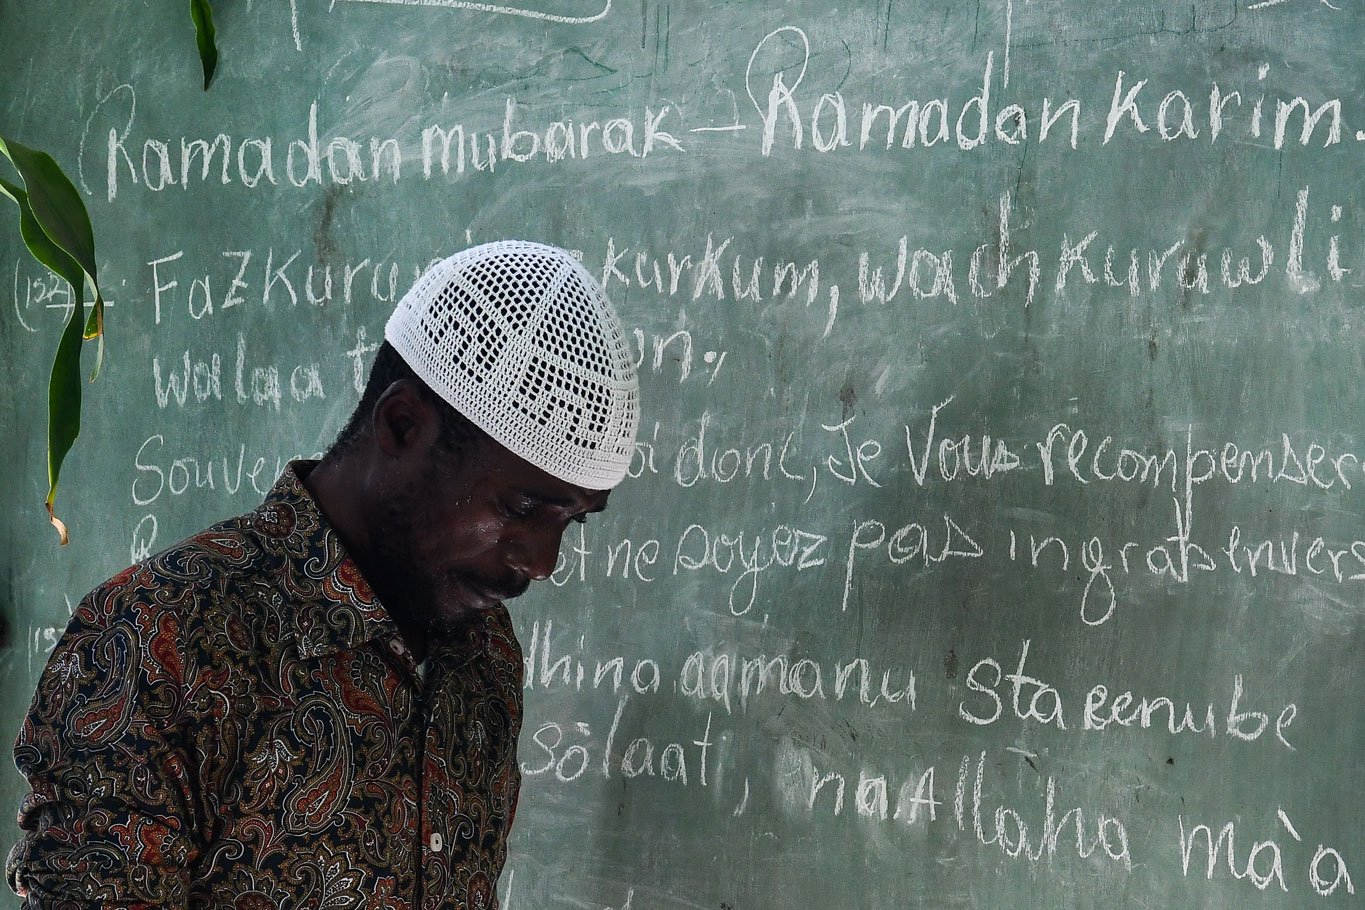 Ramadan mubarak - Ramadan Karim.
(152) FazKuru kurkum, wach Kuruw li
walaa t un.
Souve oi donc, Je Vous récompenser
R et ne soyez pas ingrats envers
(15 dhina aamanu Sta eenube
Sòlaat, na Allaha Ma'a